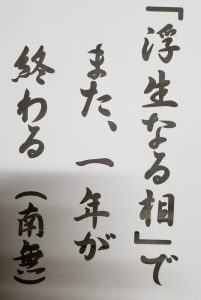 『浮生なる相』で
また、一年が
終わる（南無）